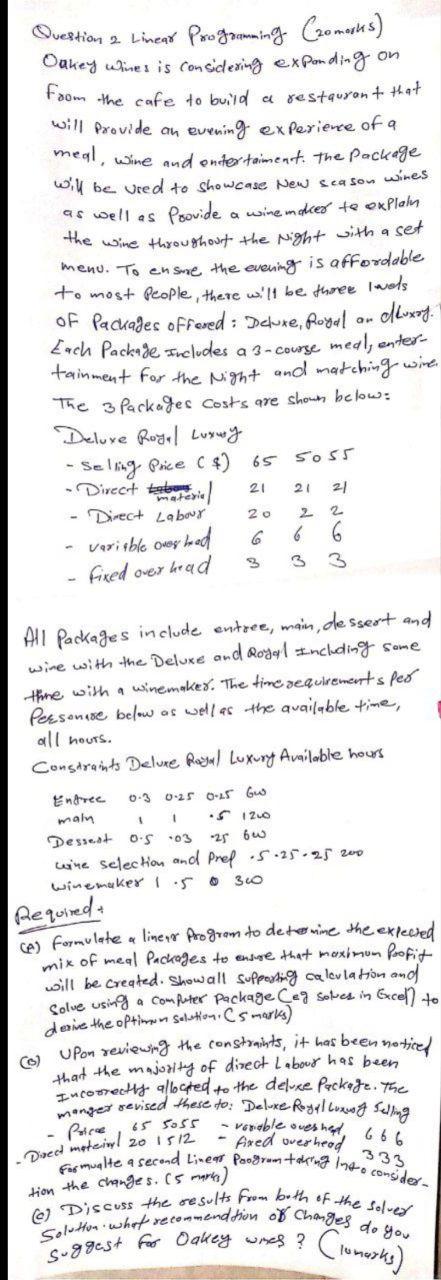 Question 2 Linear Programming (20 marks)
Oakey wines is considering expanding on
from the cafe to build a restaurant that
will provide an evening experience of a
meal, wine and entertaiment. The package
will be used to showcase New season wines
as well as Provide a winemaker to explain
the wine throughout the Night with a set
menu. To ensure the evening is affordable
to most people, there will be three levels
of Packages offered: Deluxe, Royal an d Luxury.
Each Package Includes a 3-course meal, enter-
tainment for the Night and matching wine.
The 3 Packages Costs are shown below:
Deluxe Royal Luxury
- Selling Price ($) 65 50 55
- Direct material 21 21 21
- Direct Labour 20 2 2
- variable over head 6 6 6
- fixed over head 3 3 3
All Packages include entree, main, dessert and
wine with the Deluxe and Royal Including some
time with a winemaker. The time requirements per
Person are below as well as the available time,
all hours.
Constraints Deluxe Royal Luxury Available hours
Entree 0.3 0.25 0.25 600
main 1 1 .5 1200
Dessert 0.5 .03 .25 600
wine selection and Prep .5 .25 .25 200
winemaker 1 .5 0 300
Required:
(A) Formulate a linear Program to determine the expected
mix of meal Packages to ensure that maximum Profit
will be created. Show all supporting calculation and
Solve using a computer Package (eg solves in Excel) to
derive the optimum solution. (5 marks)
(B) Upon reviewing the constraints, it has been noticed
that the majority of direct Labour has been
Incorrectly allocated to the deluxe Package. The
manger revised these to: Deluxe Royal Luxury Selling
- Price 65 50 55 - variable overhed 6 6 6
- Direct material 20 15 12 - fixed overhead 3 3 3
Formualte a second Linear Program taking Into consider-
tion the changes. (5 marks)
(c) Discuss the results from both of the solver
Solution. what recommendtion of changes do you
suggest for Oakey wines? (10 marks)